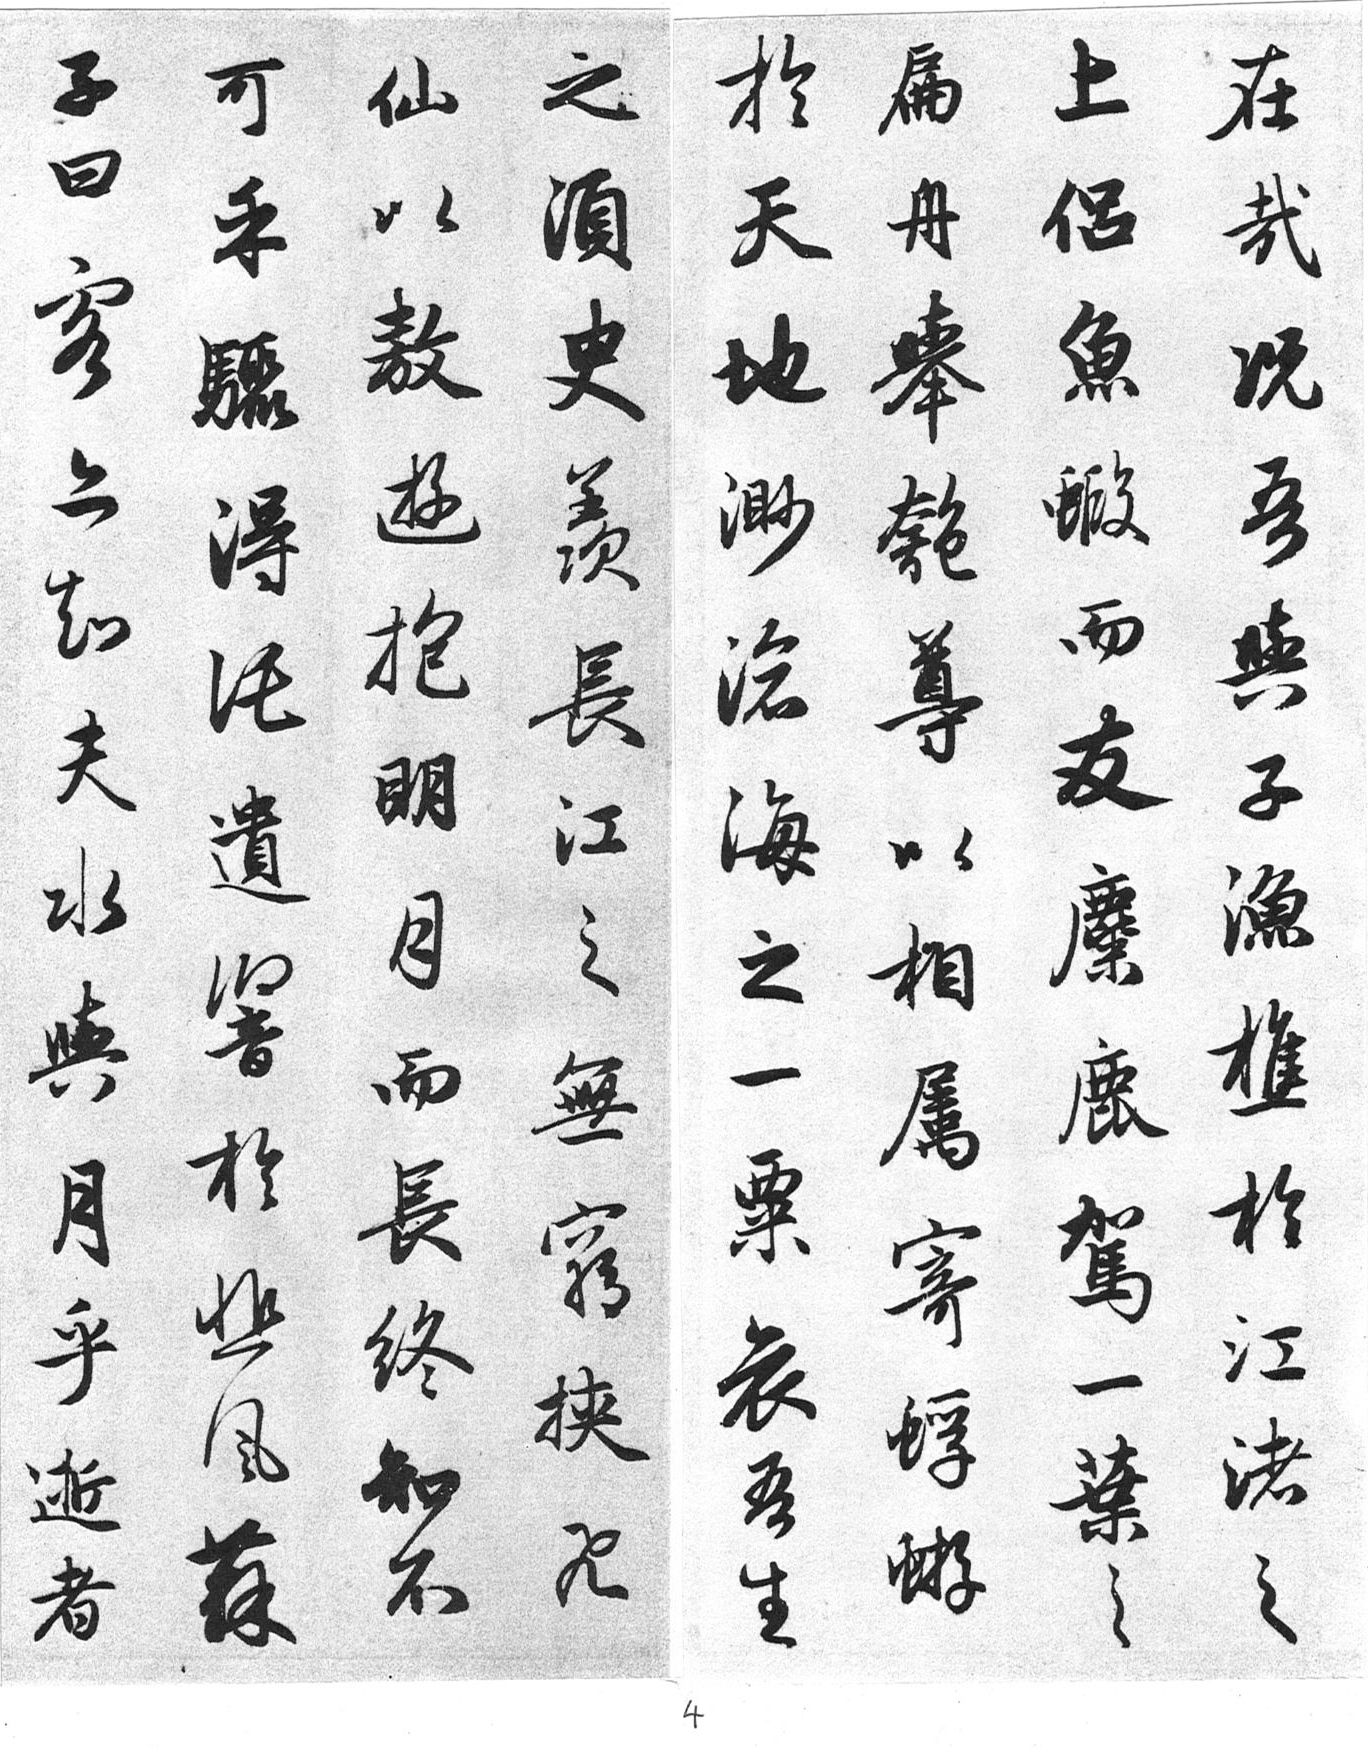 在哉況吾與子漁樵於江渚之
上侶魚蝦而友麋鹿駕一葉之
扁舟舉匏尊以相屬寄蜉蝣
於天地渺滄海之一粟哀吾生
之須臾羨長江之無窮挾飛
仙以遨遊抱明月而長終知不
可乎驟得託遺響於悲風蘇
子曰客亦知夫水與月乎逝者
4